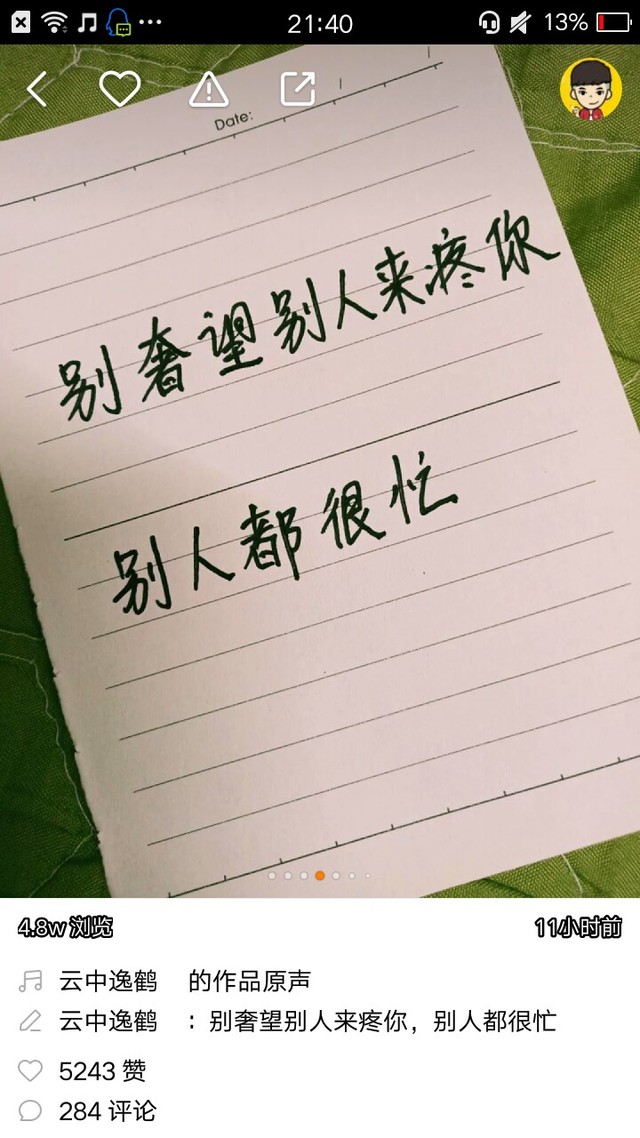 21:40
13%
Date:
别奢望别人来疼你
别人都很忙
4.8w 浏览
11小时前
云中逸鹤 的作品原声
云中逸鹤 : 别奢望别人来疼你，别人都很忙
5243 赞
284 评论